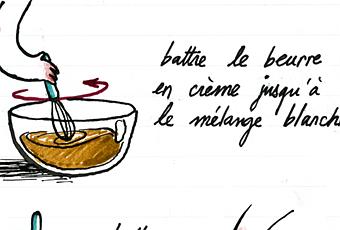 battre le beurre
en crème jusqu'à
le mélange